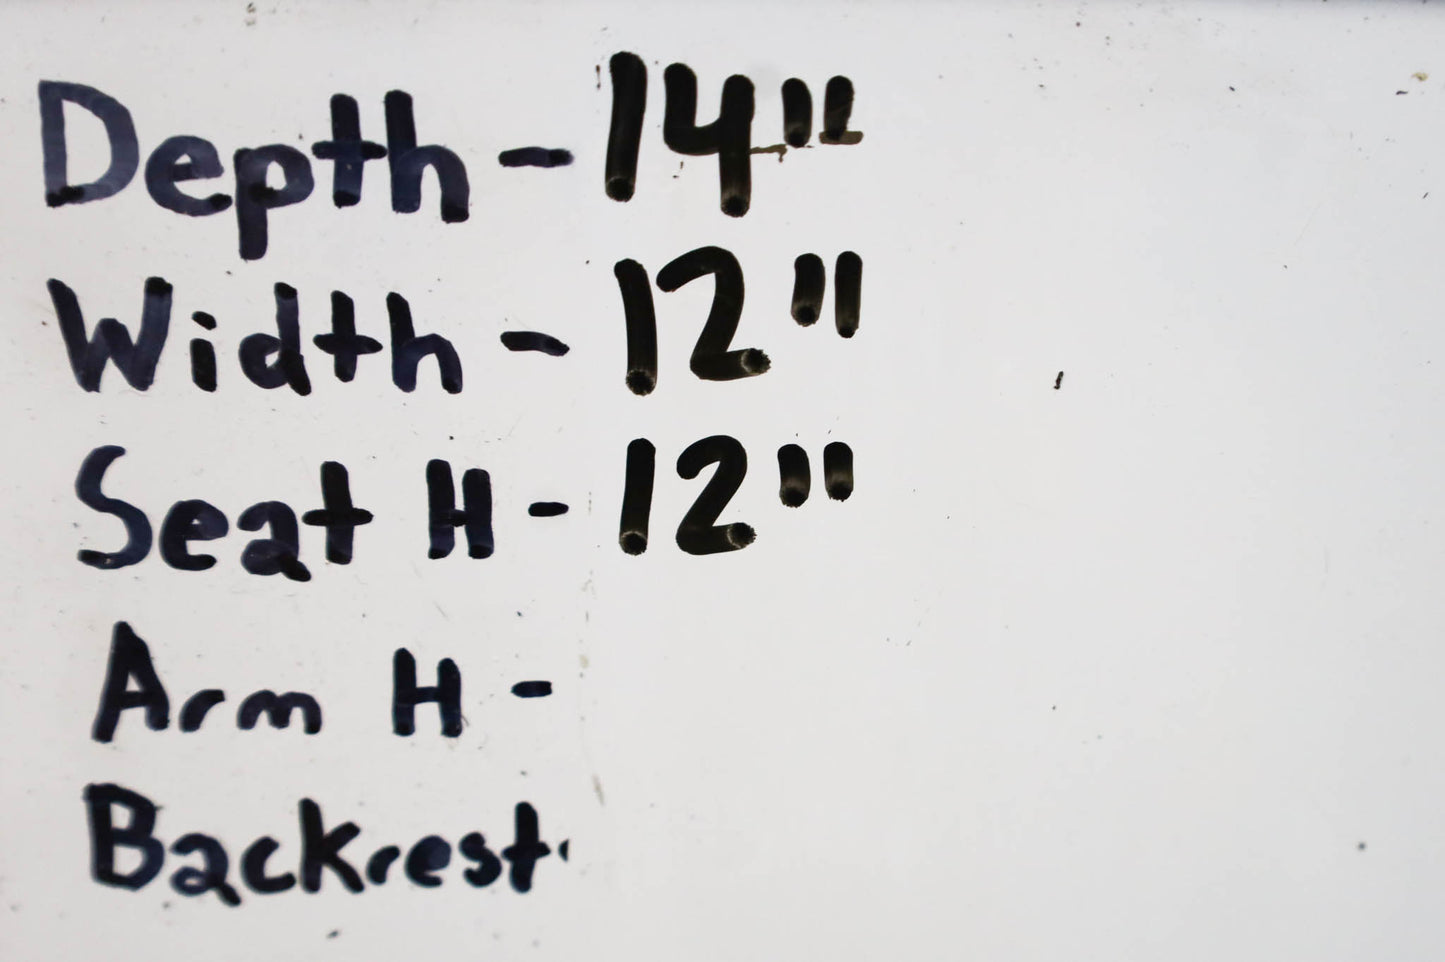 Depth - 14"
Width - 12"
Seat H - 12"
Arm H -
Backrest -